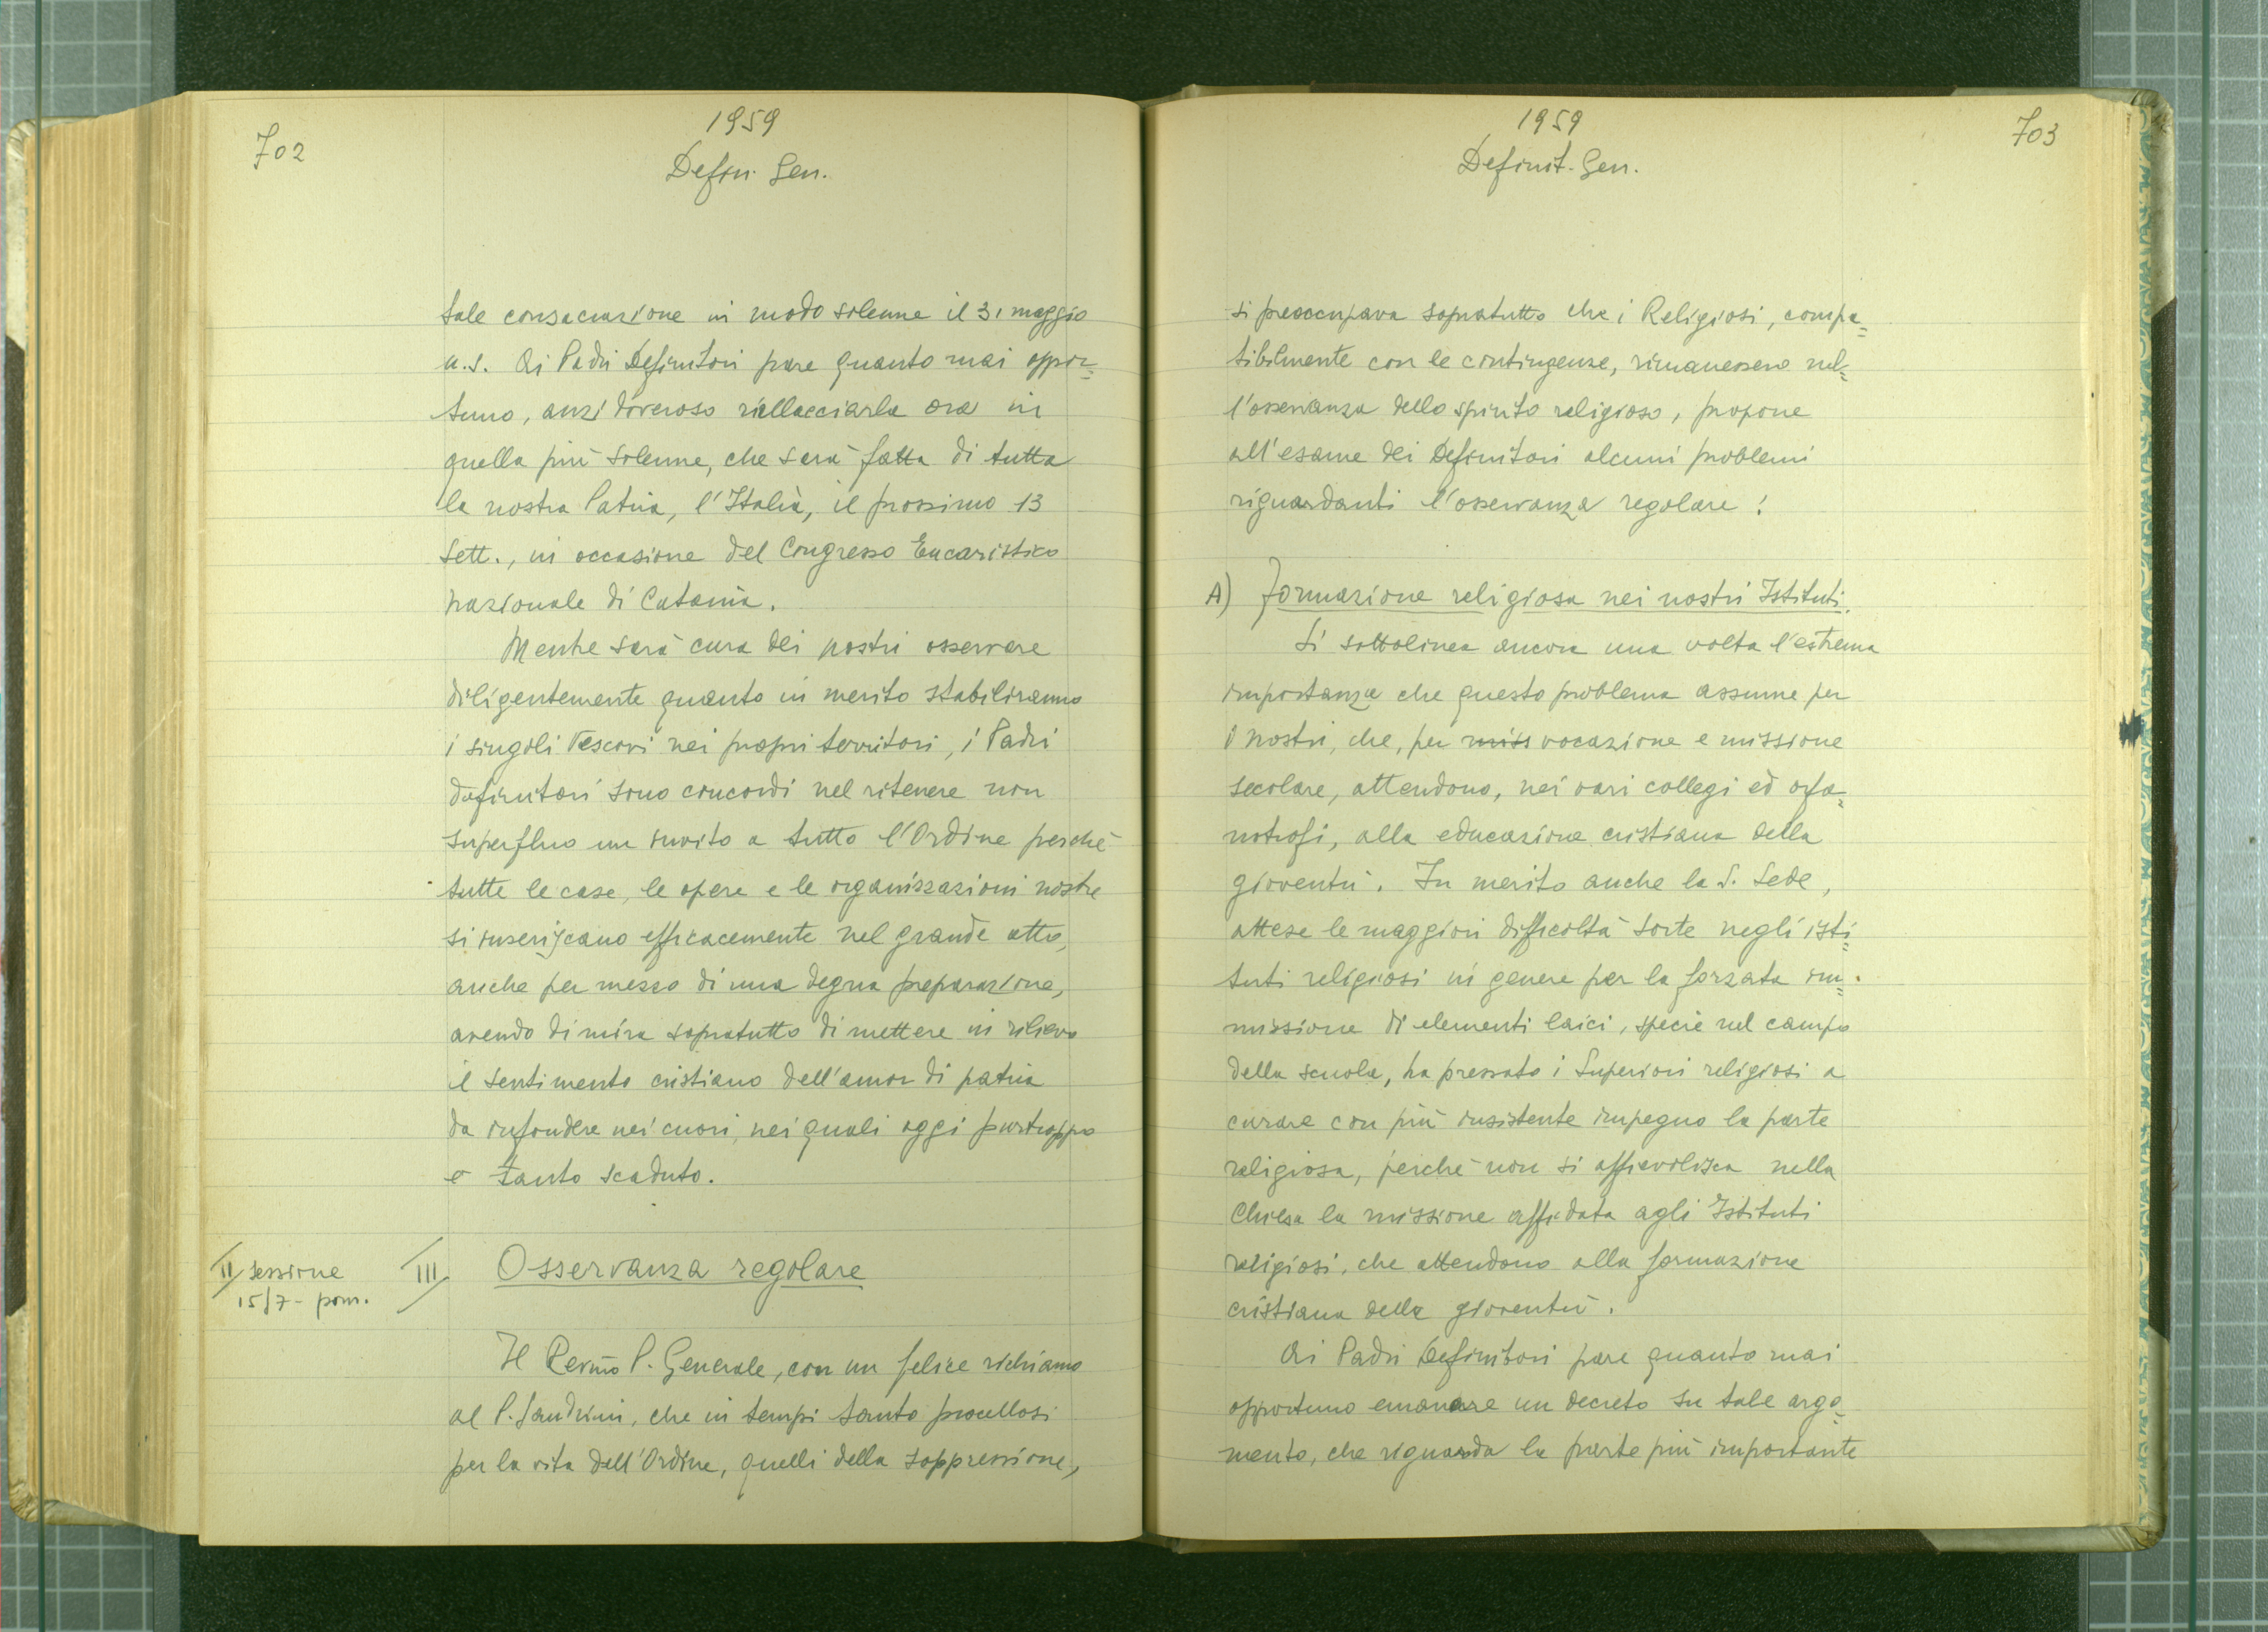 702
1959
Defin. Gen.
tale consacrazione in modo solenne il 31 maggio
u.s. Ai Padri Definitori pare quanto mai oppor=
tuno, anzi doveroso riallacciarla ora in
quella più solenne, che sarà fatta di tutta
la nostra Patria, l'Italia, il prossimo 13
Sett., in occasione del Congresso Eucaristico
nazionale di Catania.
Mentre sarà cura dei nostri osservare
diligentemente quanto in merito stabiliranno
i singoli Vescovi nei propri territori, i Padri
definitori sono concordi nel ritenere non
superfluo un invito a tutto l'Ordine perché
tutte le case, le opere e le organizzazioni nostre
si inseriscano efficacemente nel grande atto,
anche per mezzo di una degna preparazione,
avendo di mira sopratutto di mettere in rilievo
il sentimento cristiano dell'amor di patria
da infondere nei cuori, nei quali oggi purtroppo
è tanto scaduto.
II sessione
15/7 - pom.
III Osservanza regolare
Il Rev̄mo P. Generale, con un felice richiamo
al P. Sandrini, che in tempi tanto procellosi
per la vita dell'Ordine, quelli della soppressione,
703
1959
Definit. Gen.
si preoccupava sopratutto che i Religiosi, compa=
tibilmente con le contingenze, rimanessero nel=
l'osservanza dello spirito religioso, propone
all'esame dei Definitori alcuni problemi
riguardanti l'osservanza regolare:
A) Formazione religiosa nei nostri Istituti.
Si sottolinea ancora una volta l'estrema
importanza che questo problema assume per
i nostri, che, per miss vocazione e missione
secolare, attendono, nei vari collegi ed orfa=
notrofi, alla educazione cristiana della
gioventù. In merito anche la S. Sede,
attese le maggiori difficoltà sorte negli isti=
tuti religiosi in genere per la forzata im=
missione di elementi laici, specie nel campo
della scuola, ha pressato i Superiori religiosi a
curare con più insistente impegno la parte
religiosa, perché non si affievolisca nella
Chiesa la missione affidata agli Istituti
religiosi, che attendono alla formazione
cristiana della gioventù.
Ai Padri Definitori pare quanto mai
opportuno emanare un decreto su tale argo=
mento, che riguarda la parte più importante